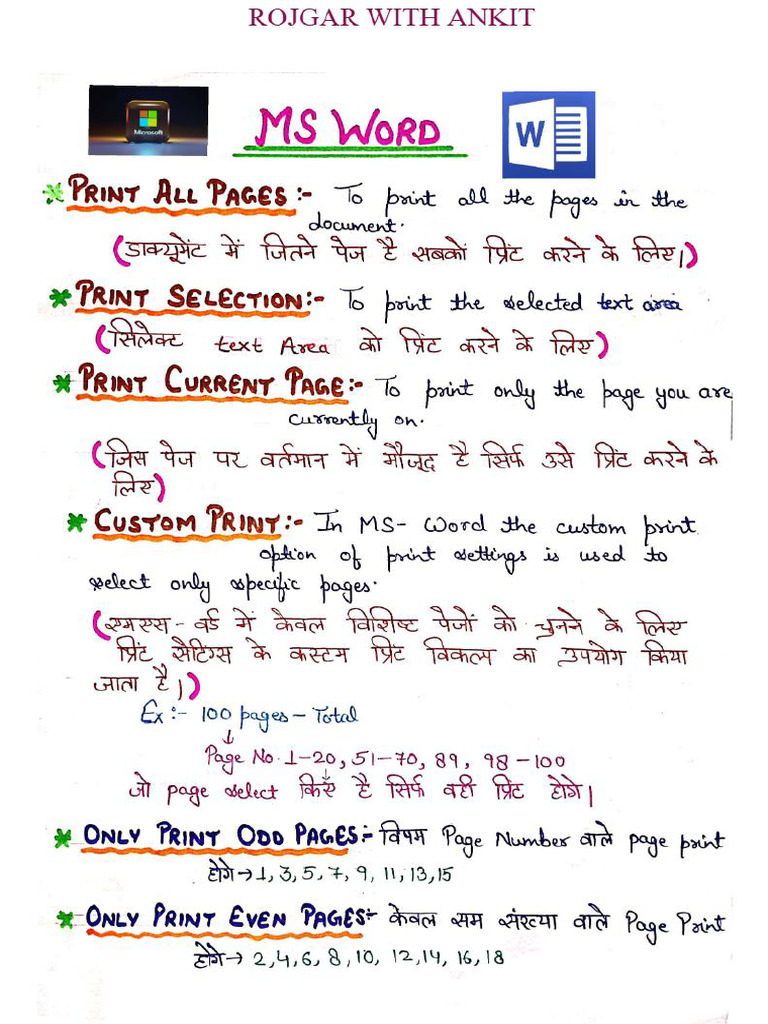 ROJGAR WITH ANKIT
Microsoft
MS WORD
W
* PRINT ALL PAGES :- To print all the pages in the
document.
(डाक्यूमेंट में जितने पेज है सबकों प्रिंट करने के लिए।)
* PRINT SELECTION:- To print the selected text area
(सिलेक्ट text Area को प्रिंट करने के लिए)
* PRINT CURRENT PAGE:- To print only the page you are
currently on.
(जिस पेज पर वर्तमान में मौजूद है सिर्फ उसे प्रिंट करने के
लिए)
* CUSTOM PRINT:- In MS- Word the custom print
option of print settings is used to
select only specific pages.
(एमएस-वर्ड में केवल विशिष्ट पेजों को चुनने के लिए
प्रिंट सैटिंग्स के कस्टम प्रिंट विकल्प का उपयोग किया
जाता है।)
Ex:- 100 pages - Total
↓
Page No. 1-20, 51-70, 89, 98-100
जो page select किए है सिर्फ वही प्रिंट होंगे।
* ONLY PRINT ODD PAGES:- विषम Page Number वाले page print
होंगे→ 1, 3, 5, 7, 9, 11, 13, 15
* ONLY PRINT EVEN PAGES:- केवल सम संख्या वाले Page Print
होंगे→ 2, 4, 6, 8, 10, 12, 14, 16, 18